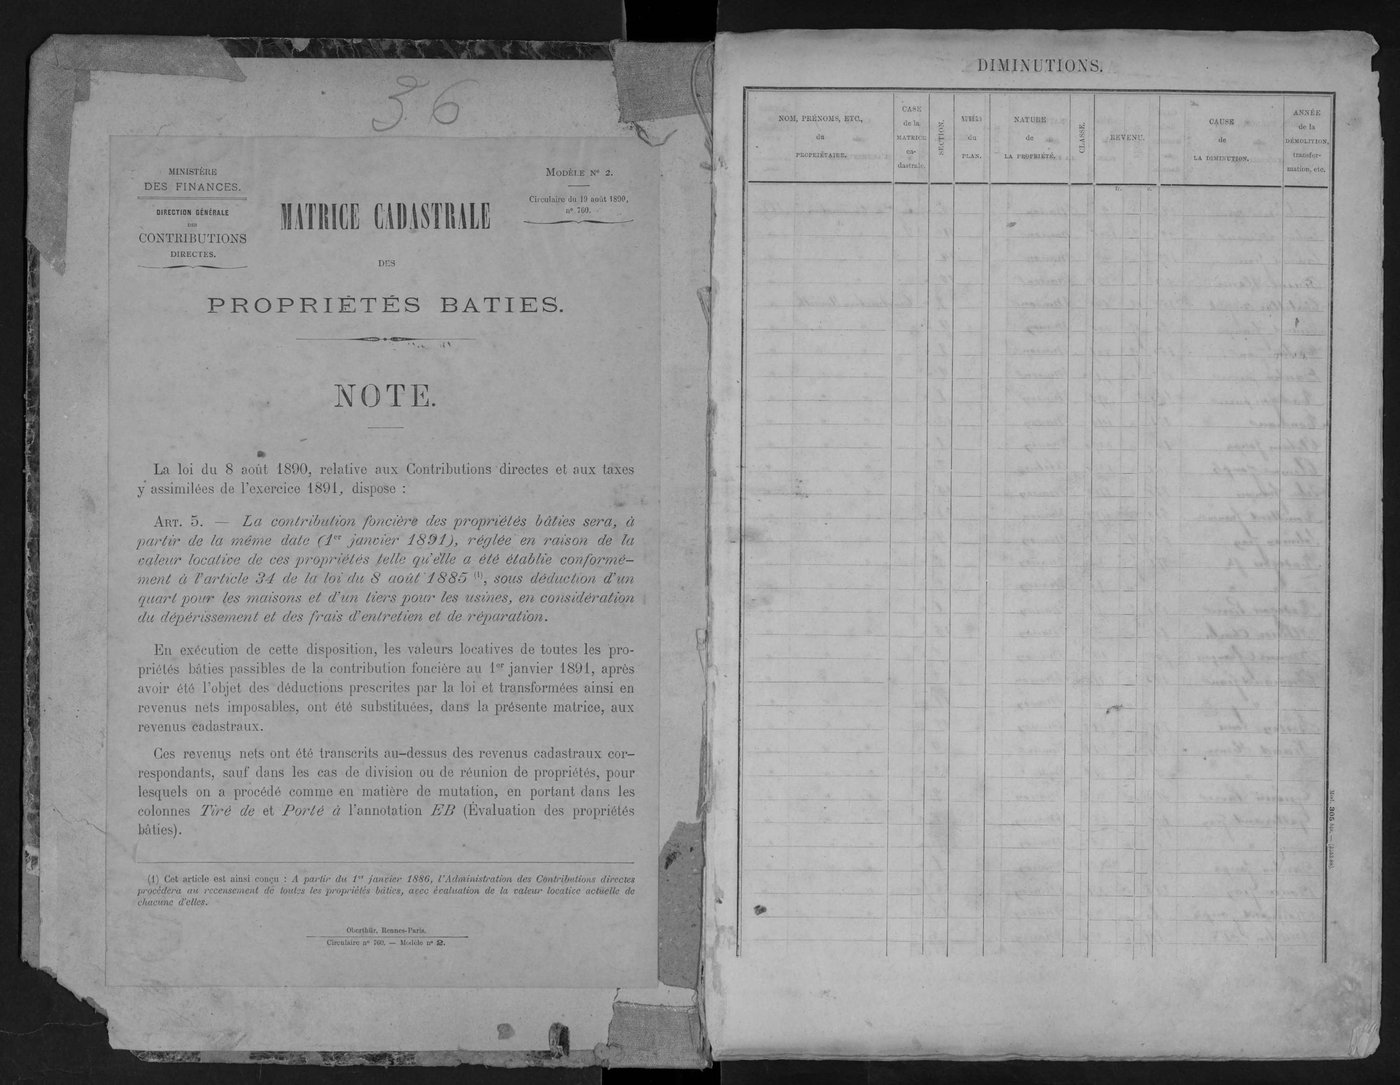 36
MINISTÈRE
DES FINANCES.
DIRECTION GÉNÉRALE
DES
CONTRIBUTIONS
DIRECTES.
MODÈLE Nº 2.
Circulaire du 19 août 1890,
nº 760.
MATRICE CADASTRALE
DES
PROPRIÉTÉS BATIES.
NOTE.
La loi du 8 août 1890, relative aux Contributions directes et aux taxes
y assimilées de l'exercice 1891, dispose :
ART. 5. — La contribution foncière des propriétés bâties sera, à
partir de la même date (1er janvier 1891), réglée en raison de la
valeur locative de ces propriétés telle qu'elle a été établie conformé-
ment à l'article 34 de la loi du 8 août 1885 (1), sous déduction d'un
quart pour les maisons et d'un tiers pour les usines, en considération
du dépérissement et des frais d'entretien et de réparation.
En exécution de cette disposition, les valeurs locatives de toutes les pro-
priétés bâties passibles de la contribution foncière au 1er janvier 1891, après
avoir été l'objet des déductions prescrites par la loi et transformées ainsi en
revenus nets imposables, ont été substituées, dans la présente matrice, aux
revenus cadastraux.
Ces revenus nets ont été transcrits au-dessus des revenus cadastraux cor-
respondants, sauf dans les cas de division ou de réunion de propriétés, pour
lesquels on a procédé comme en matière de mutation, en portant dans les
colonnes Tiré de et Porté à l'annotation EB (Évaluation des propriétés
bâties).
(1) Cet article est ainsi conçu : A partir du 1er janvier 1886, l'Administration des Contributions directes
procédera au recensement de toutes les propriétés bâties, avec évaluation de la valeur locative actuelle de
chacune d'elles.
Oberthür, Rennes-Paris.
Circulaire nº 760. — Modèle nº 2.
DIMINUTIONS.
NOM, PRÉNOMS, ETC.,
du
PROPRIÉTAIRE.
CASE
de la
MATRICE
ca-
dastrale.
SECTION.
NUMÉRO
du
PLAN.
NATURE
de
LA PROPRIÉTÉ.
CLASSE.
REVENU.
fr. c.
CAUSE
de
LA DIMINUTION.
ANNÉE
de la
DÉMOLITION,
transfor-
mation, etc.